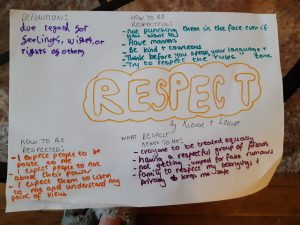 DEFINITION:
due regard for
feelings, wishes, or
rights of others
HOW TO BE
RESPECTFUL:
- not punching them in the face even if
you want to
- Have manners
- Be kind + courteous
- Think before you speak, your language +
tone.
- Try to respect the "rules"
RESPECT
By Kieran +
HOW TO BE
RESPECTED:
- I expect people to be
polite to me
- I expect people to not
abuse their power
- I expect them to listen
to me and understand my
point of view
WHAT RESPECT
MEANS TO ME:
- everyone to be treated equally
- having a respectful group of friends
- not getting jumped for false rumours
- Family to respect my belongings +
privacy + keep me safe